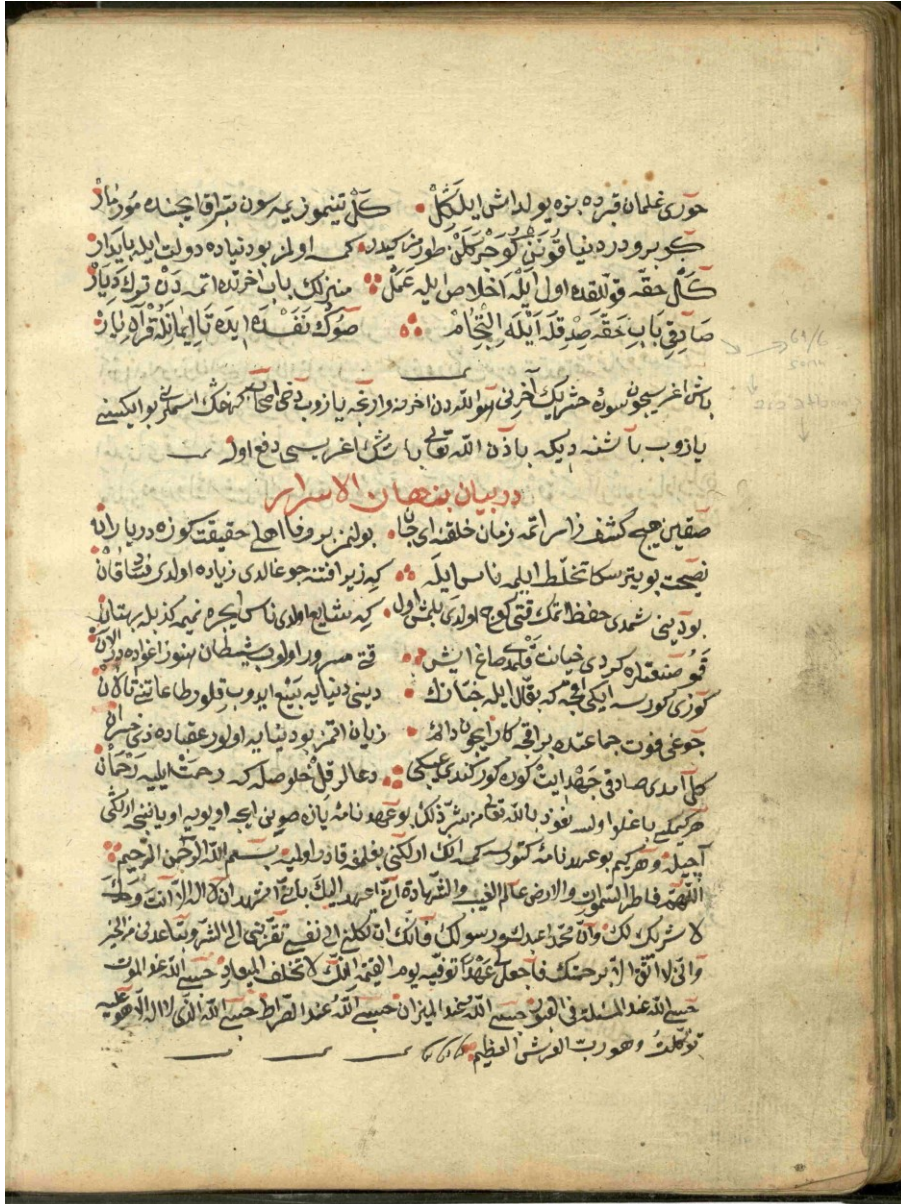 حوری غلمان قبرده بزه یولداش ایلکل كل تنیموز یمه سون بتراق ایچنده مور مار
كوبرو در دنیا قونن كوجر طورمز كیدر كمسه اولمز بو دنیاده دولت ایله پایدار
كل حقه قوللقده اول ایله اخلاص ایله عمل منزلك یاب اخرتده اتمه دن ترك دیار
صادقی یاب حقه صدقله ایله التجا صوك نفسده ایده تا ایمانله قرار
باش اغریسیچون سوره حشرك آخرنی هو الله دن اخرینه وارنجه یازوب دخی اصحاب كهفك اسملرنی بو ایكسنی
یازوب باشنه دیكه باذن الله تعالی باشك اغریسی دفع اوله
در بیان پنهان الاسرار
صقین هیچ كشف راسر اتمه زمان خلقنه ای جان بولنمز بر وفا اهلی حقیقت كوزه در یارانه
نصیحت بو یتر سكا تخلط ایلمه ناس ایله كه زیرا فتنه جوغالدی زیاده اولدی
بو دینی شمدی حفظ اتمك قتی كوج اولدی بلمش اول كه شایع اولدی ناس ایچره نمیمه كذبله بهتان
قمو صنعتلره كردی خیانت قلمدی صاغ ایش قتی مسرور اولوب شیطان هنوز اغواده در الان
كوزی كورسه ایكی اقچه كه بقال ایله خبازك دینی دنیایه بیع ایدوب قلور طاعاتنی تالان
جوغی فوت جماعتده بر اقچه كار ایچون زیان اتمز بو دنیایه اولور عقباده ذی خسران
كل امدی صادقی جهد ایت كوره كور كندی عیبكی دعالر قل خلوصله كه رحمت ایلیه رحمان
هر كیمكی باغلو اولسه نعوذ بالله تعالی من شر ذلك بو عهد نامه یازه صوینی ایچه و یویه اویاننجه ارلكی
آچیله و هر كیم بو عهد نامه كتورسه كمسه انك ارلكنی بغلمغه قادر اولمیه بسم الله الرحمن الرحیم
اللهم فاطر السموات والارض عالم الغیب والشهادة انی اعهد الیك بانی اشهد ان لا اله الا انت وحدك
لا شریك لك وان محمدا عبدك ورسولك فانك ان تكلنی الی نفسی تقربنی الی الشر وتباعدنی من الخیر
وانی لا اثق الا برحمتك فاجعل لی عهدا توفیه یوم القیمة انك لا تخلف المیعاد حسبی الله عند الموت
حسبی الله عند المسئلة فی القبر حسبی الله عند المیزان حسبی الله عند الصراط حسبی الله الذی لا اله الا هو علیه
توكلت وهو رب العرش العظیم